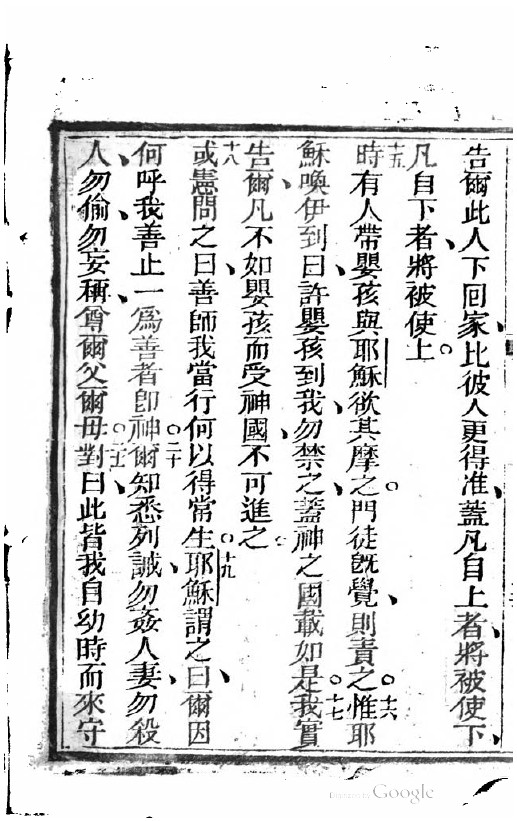 告爾此人下回家比彼人更得准蓋凡自上者將被使下、
凡自下者將被使上。
十五時有人帶嬰孩與耶穌欲其摩之。門徒既覺、則責之。十六惟耶
穌喚伊到曰、許嬰孩到我、勿禁之、蓋神之國載如是。十七我實
告爾、凡不如嬰孩而受神國、不可進之。
十八或憲問之曰、善師我當行何以得常生。十九耶穌謂之曰、爾因
何呼我善、止一為善者卽神。二十爾知悉列誡、勿姦人妻、勿殺
人、勿偷、勿妄稱、尊爾父爾母。二一對曰、此皆我自幼時而來守
Digitized by Google